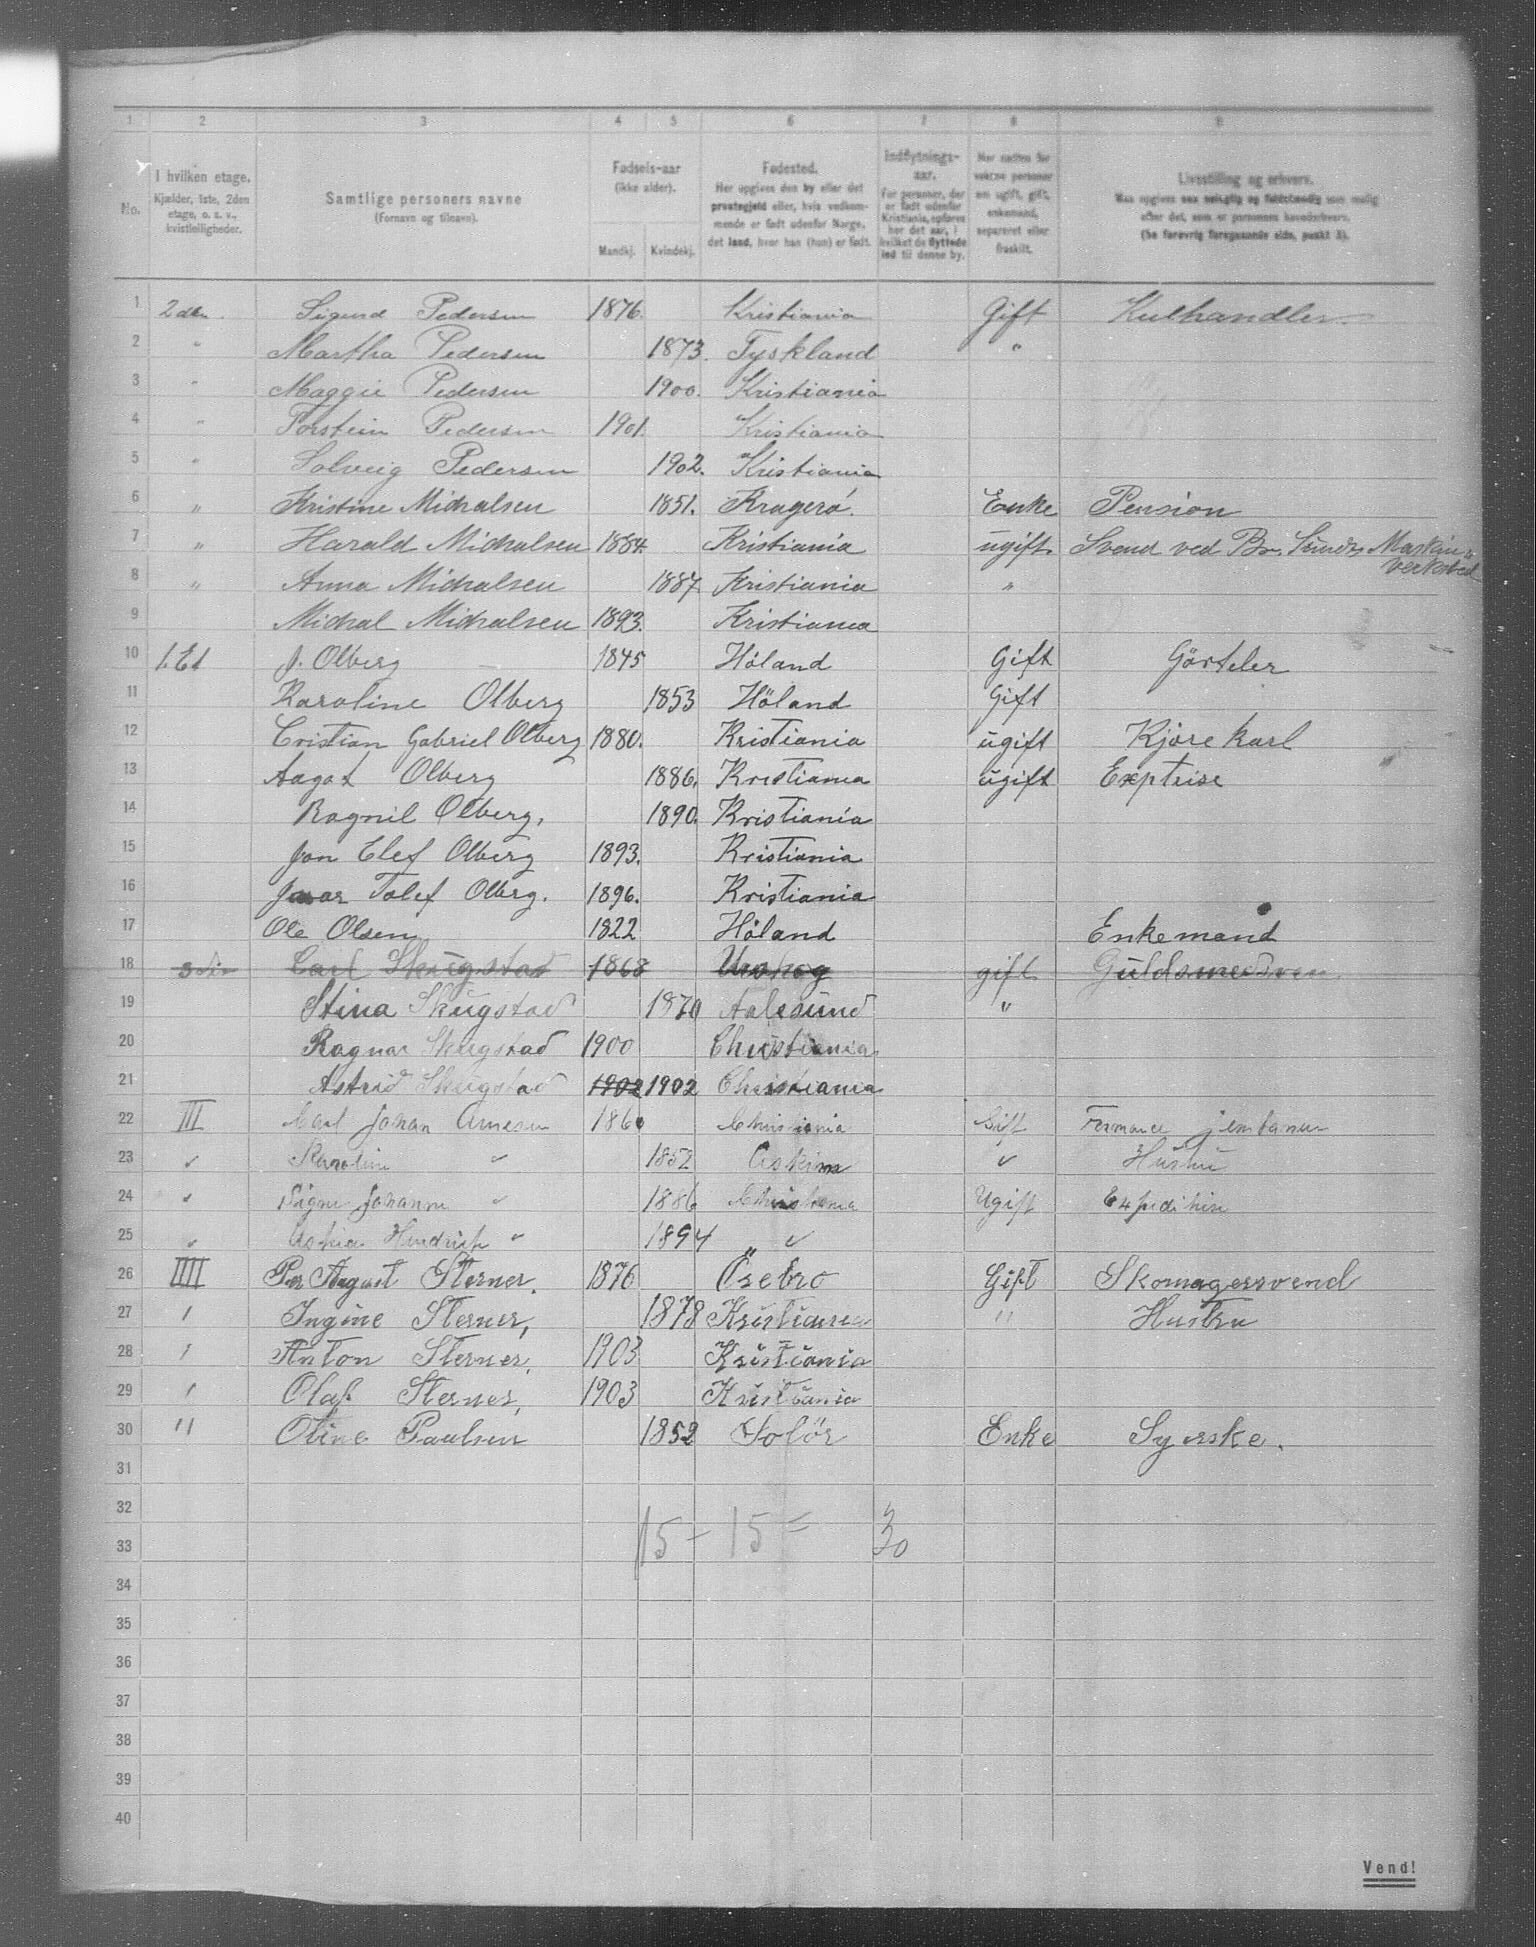 1 2 3 4 5 6 7 8 9
No.
I hvilken etage.
Kjælder, 1ste, 2den
etage, o. s. v.,
kvistleiligheder.
Samtlige personers navne
(Fornavn og tilnavn).
Fødsels-aar
(ikke alder).
Mandkj. Kvindekj.
Fødested.
Her opgives den by eller det
præstegjeld eller, hvis vedkom-
mende er født udenfor Norge,
det land, hvor han (hun) er født.
Indflytnings-
aar.
For personer, der
er født udenfor
Kristiania, opføres
her det aar, i
hvilket de flyttede
ind til denne by.
Her anføres for
voksne personer
om ugift, gift,
enkemand,
separeret eller
fraskilt.
Livsstilling og erhverv.
(Se forøvrig foregaaende side, punkt 3).
1 2den Sigurd Pedersen 1876. Kristiania Gift Kulhandler
2 " Martha Pedersen 1873. Tyskland "
3 " Maggie Pedersen 1900. Kristiania
4 " Torstein Pedersen 1901. Kristiania
5 " Solveig Pedersen 1902. Kristiania
6 " Kristine Michalsen 1851. Kragerö. Enke Pension
7 " Harald Michalsen 1884. Kristiania ugift. Svend ved Br. Sundes Maskin
verksted
8 " Anna Michalsen 1887 Kristiania "
9 Michal Michalsen 1893. Kristiania
10 1. Et J. Olberg 1845 Höland Gift Görteler
11 Karoline Olberg 1853 Höland Gift
12 Cristian Gabriel Olberg 1880. Kristiania ugift Kjøre karl
13 Aagot Olberg 1886. Kristiania ugift Exptrise
14 Ragnil Olberg. 1890. Kristiania
15 Jon Elef Olberg 1893. Kristiania
16 Tolef Olberg. 1896. Kristiania
17 Ole Olsen 1822 Höland Enkemand
18 3die Carl Skugstad 1868 Urskog gift Guldsmedsven
19 Stina Skugstad 1870 Aalesund "
20 Ragnar Skugstad 1900 Christiania
21 Astrid Skugstad 1902 1902 Christiania
22 III Carl Johan Arnesen 1860 Christiania Gift
23 " Karoline " 1852 Askim " Hustru
24 " Signe Johanne " 1886 Christiania Ugift Expeditrise
25 " " 1894 "
26 IIII Per August Sterner. 1876 Örebro Gift Skomagersvend
27 ' Ingine Sterner, 1878 Kristiania " Hustru
28 ' Anton Sterner, 1903 Kristiania
29 ' Olaf Sterner, 1903 Kristiania
30 " Oline Paulsen 1852 Solör Enke Syerske.
31
32
33 15 - 15 = 30
34
35
36
37
38
39
40
Vend!